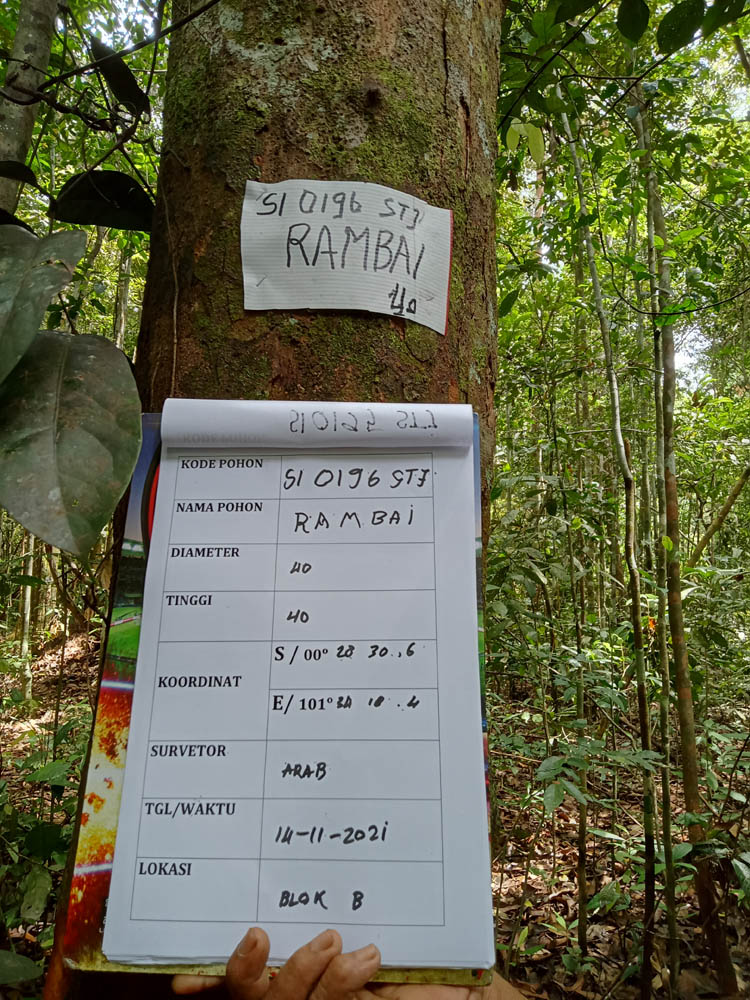 SI 0196 STJ
RAMBAI
40
KODE POHON SI 0196 STJ
NAMA POHON RAMBAI
DIAMETER 40
TINGGI 40
KOORDINAT
S / 00° 28 30 .,6
E/ 101° 10 . 4
SURVETOR ARAB
TGL/WAKTU 14-11-2021
LOKASI BLOK B